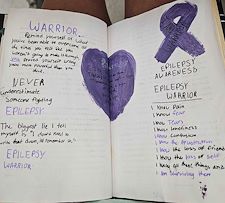 WARRIOR
Remind yourself of what
you've been able to overcome. All
the times you felt like you
weren't going to make it through,
you proved yourself wrong.
You're more powerful than you
think.
NEVER
underestimate
someone fighting
EPILEPSY
The biggest lie I tell
myself is "I don't need to
write that down, I'll remember it."
EPILEPSY
WARRIOR
EPILEPSY
AWARENESS
EPILEPSY
WARRIOR
I know Pain
I know Fear
I know Tears
I know loneliness
I know Confusion
I know the Frustration
I know the loss of friends
I know the loss of self
I know all these things, and
I am Surviving them